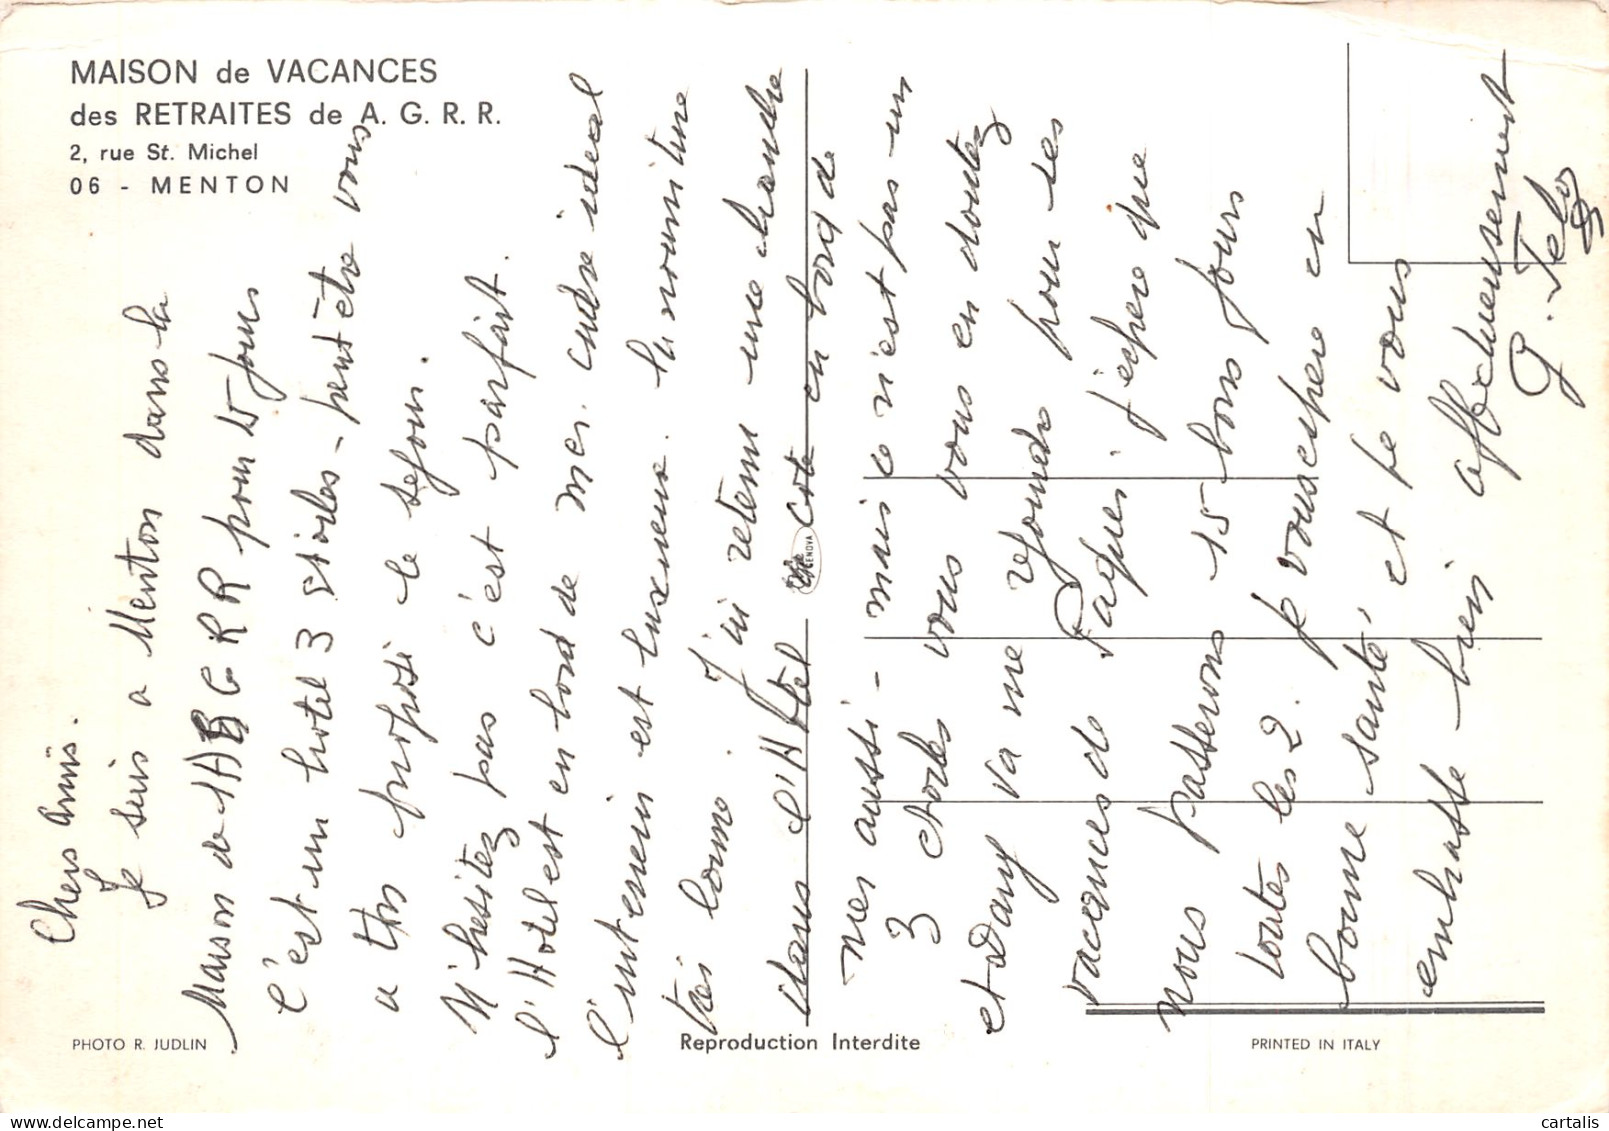 MAISON de VACANCES
des RETRAITES de A. G. R. R.
2, rue St. Michel
06 - MENTON
Chers Amis.
Je suis a Menton dans la
Maison de l'AGRR pour 15 jours
C'est un hotel 3 etoiles - peut être vous
a t'on proposé le sejour.
N'hesitez pas c'est parfait.
l'Hotel est en bord de mer. cadre ideal
l'entretien est luxueux. la nourriture
très bonne. J'ai retenu une chambre
dans l'Hôtel Cote en bord de
mer aussi - mais ce n'est pas un
3 etoiles vous vous en doutez
et Dany va me rejoindre pour les
vacances de Paques j'espere que
nous passerons 15 bons jours
toutes les 2. Je vous espere en
bonne santé et je vous
embrasse bien affectueusement
G.
PHOTO R. JUDLIN
Reproduction Interdite
PRINTED IN ITALY
GENOVA
cartalis